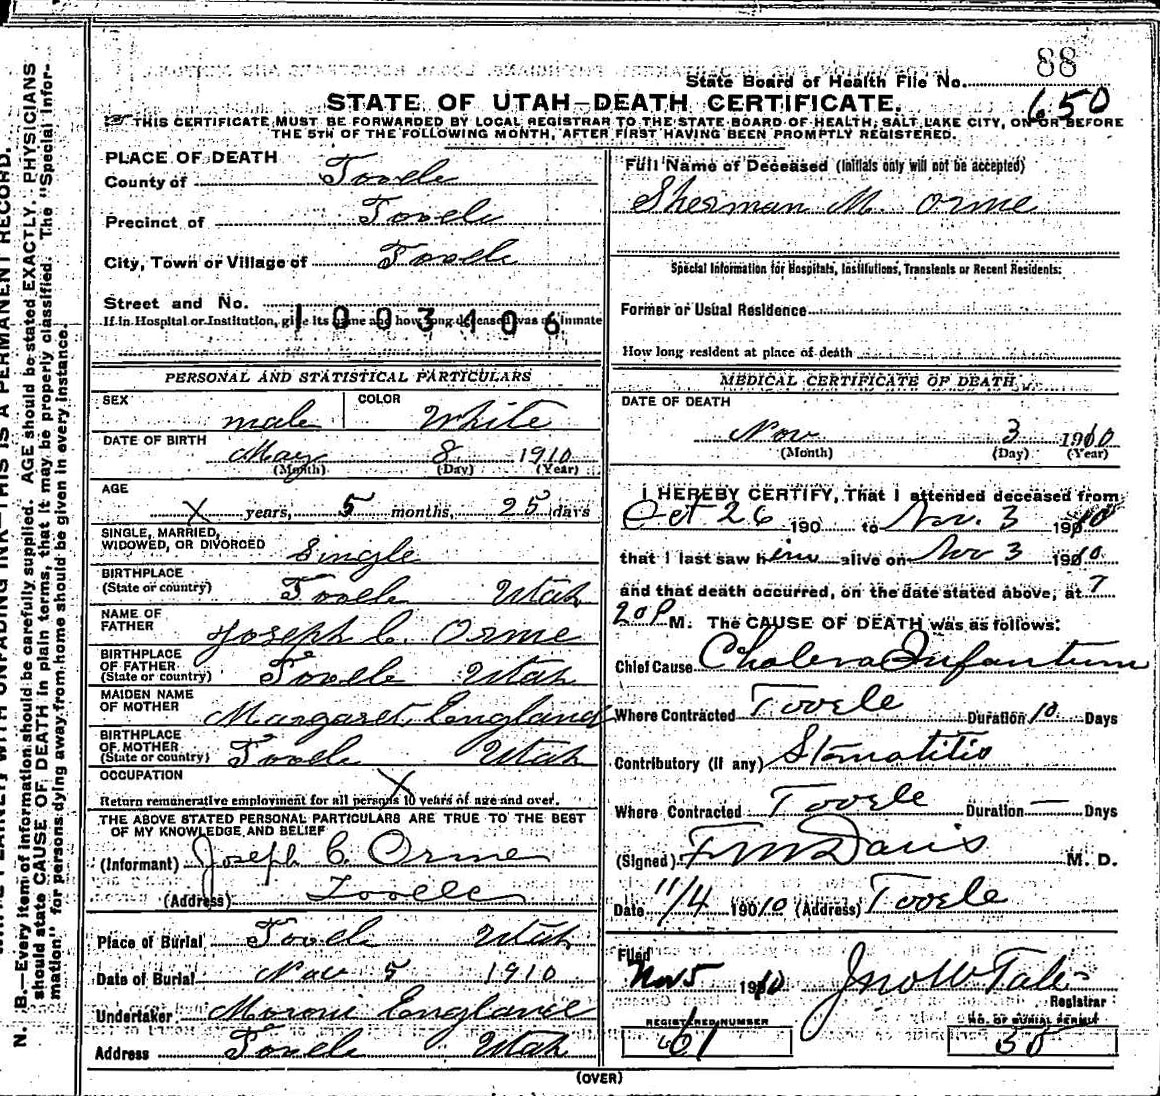 88
State Board of Health File No.
650
STATE OF UTAH—DEATH CERTIFICATE.
THIS CERTIFICATE MUST BE FORWARDED BY LOCAL REGISTRAR TO THE STATE BOARD OF HEALTH, SALT LAKE CITY, ON OR BEFORE
THE 5TH OF THE FOLLOWING MONTH, AFTER FIRST HAVING BEEN PROMPTLY REGISTERED.
PLACE OF DEATH
County of Tooele
Precinct of Tooele
City, Town or Village of Tooele
Street and No.
1003106
If in Hospital or Institution, give its name and how long deceased was an inmate
PERSONAL AND STATISTICAL PARTICULARS
SEX male COLOR White
DATE OF BIRTH May 8 1910
(Month) (Day) (Year)
AGE
X years, 5 months, 25 days
SINGLE, MARRIED,
WIDOWED, OR DIVORCED Single
BIRTHPLACE
(State or country) Tooele Utah
NAME OF
FATHER Joseph C. Orme
BIRTHPLACE
OF FATHER
(State or country) Tooele Utah
MAIDEN NAME
OF MOTHER Margaret England
BIRTHPLACE
OF MOTHER
(State or country) Tooele Utah
OCCUPATION X
Return remunerative employment for all persons 10 years of age and over.
THE ABOVE STATED PERSONAL PARTICULARS ARE TRUE TO THE BEST
OF MY KNOWLEDGE AND BELIEF
(Informant) Joseph C. Orme
(Address) Tooele
Place of Burial Tooele Utah
Date of Burial Nov 5 1910
Undertaker Moroni England
Address Tooele Utah
Full Name of Deceased (Initials only will not be accepted)
Sherman M. Orme
Special Information for Hospitals, Institutions, Transients or Recent Residents:
Former or Usual Residence
How long resident at place of death
MEDICAL CERTIFICATE OF DEATH
DATE OF DEATH
Nov 3 1910
(Month) (Day) (Year)
I HEREBY CERTIFY, That I attended deceased from
Oct 26 190 to Nov. 3 1910
that I last saw him alive on Nov 3 1910
and that death occurred, on the date stated above, at 7
20 P M. The CAUSE OF DEATH was as follows:
Chief Cause Cholera Infantum
Where Contracted Tooele Duration 10 Days
Contributory (if any) Stomatitis
Where Contracted Tooele Duration — Days
(Signed) F M Davis M. D.
Date 11/4 1910 (Address) Tooele
Filed
Nov 5 1910 Jno W Tate
Registrar
REGISTERED NUMBER
61
NO. OF BURIAL PERMIT
38
(OVER)
N. B.—Every item of information should be carefully supplied. AGE should be stated EXACTLY. PHYSICIANS
should state CAUSE OF DEATH in plain terms, that it may be properly classified. The "Special Infor-
mation" for persons dying away from home should be given in every instance.